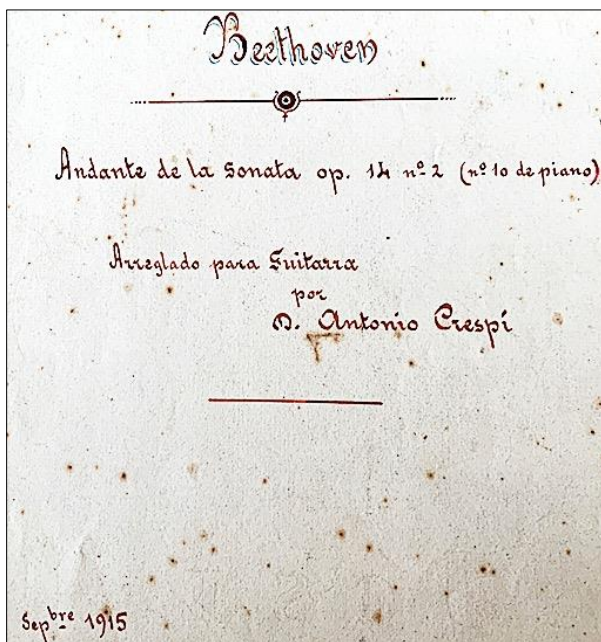 Beethoven
Andante de la Sonata op. 14 nº 2 (nº 10 de piano)
Arreglado para Guitarra
por
D. Antonio Crespí
Sepbre 1915